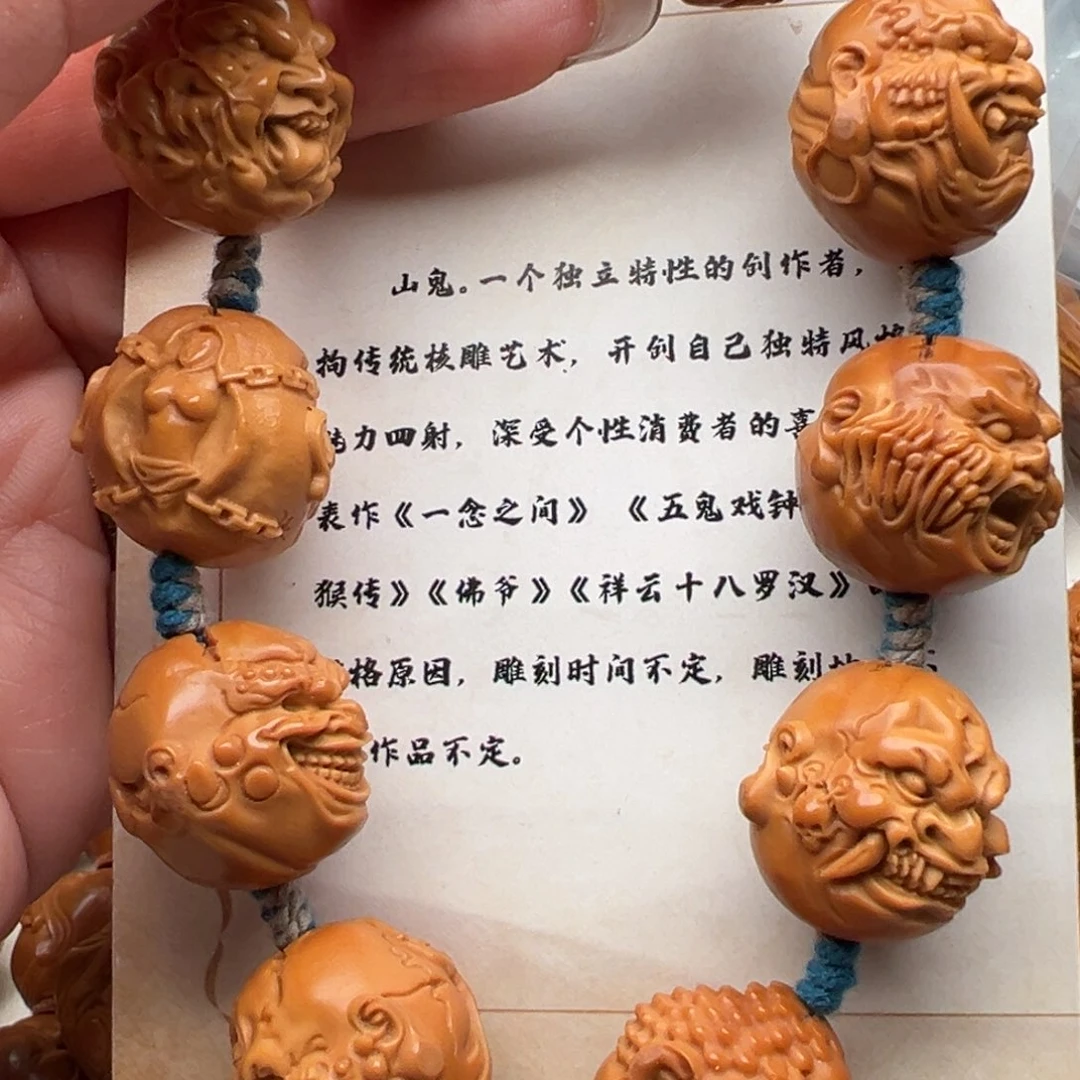 山鬼。一个独立特性的创作者，
拘传统核雕艺术，开创自己独特风
力四射，深受个性消费者的喜
表作《一念之间》《五鬼戏钟
猴传》《佛爷》《祥云十八罗汉》
格原因，雕刻时间不定，雕刻
作品不定。